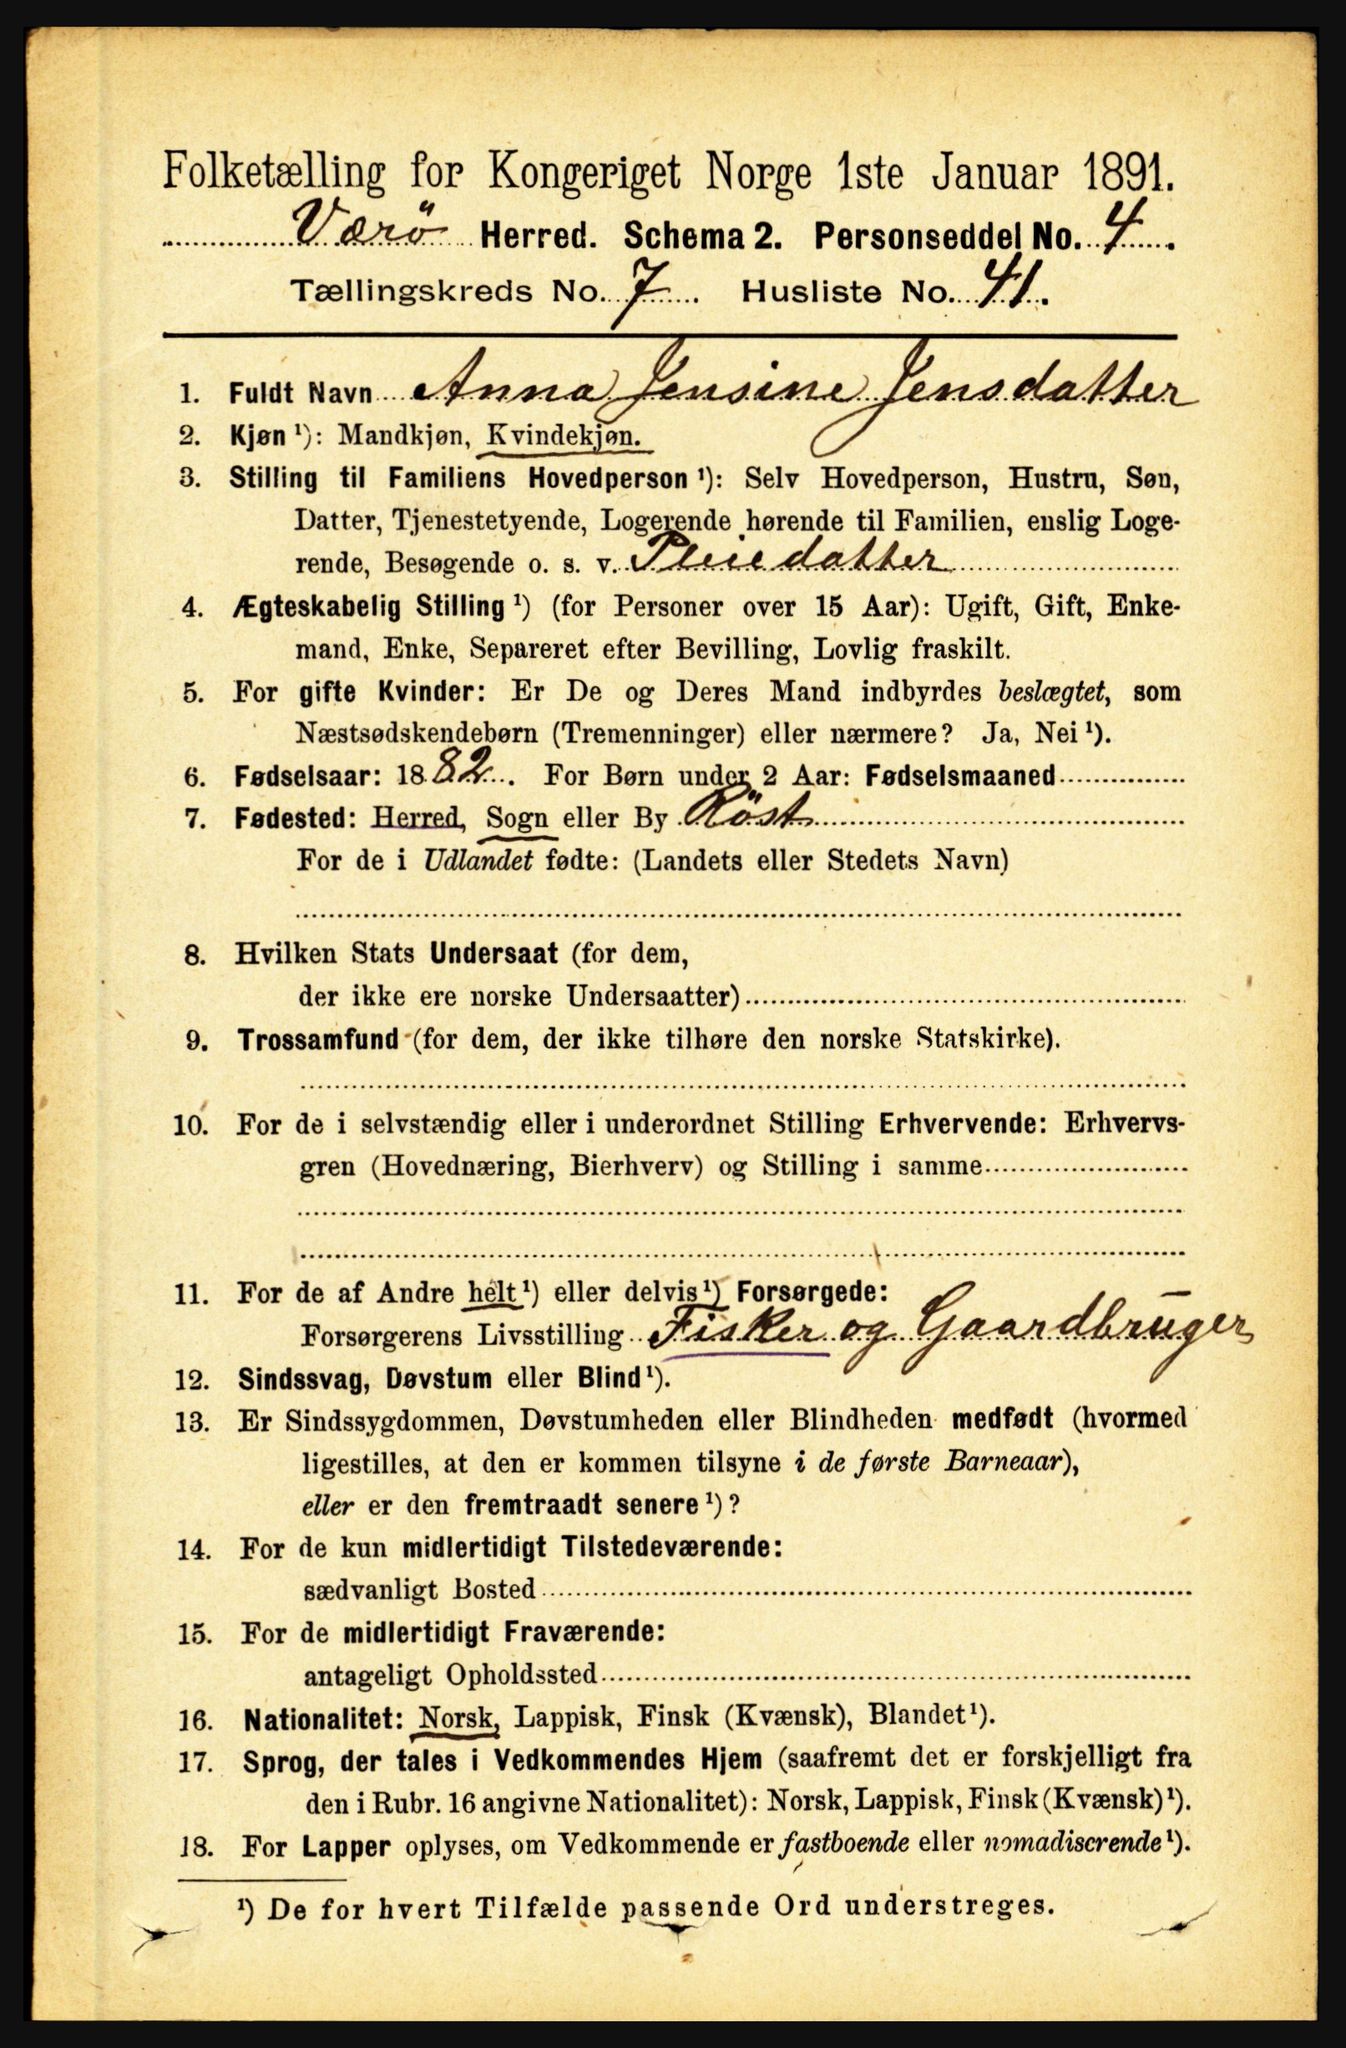 Folketælling for Kongeriget Norge 1ste Januar 1891.
Værö Herred. Schema 2. Personseddel No. 4.
Tællingskreds No. 7. Husliste No. 41.
1. Fuldt Navn Anna Jensine Jensdatter
2. Kjøn ¹): Mandkjøn, Kvindekjøn.
3. Stilling til Familiens Hovedperson ¹): Selv Hovedperson, Hustru, Søn,
Datter, Tjenestetyende, Logerende hørende til Familien, enslig Loge-
rende, Besøgende o. s. v. Pleiedatter
4. Ægteskabelig Stilling ¹) (for Personer over 15 Aar): Ugift, Gift, Enke-
mand, Enke, Separeret efter Bevilling, Lovlig fraskilt.
5. For gifte Kvinder: Er De og Deres Mand indbyrdes beslægtet, som
Næstsødskendebørn (Tremenninger) eller nærmere? Ja, Nei ¹).
6. Fødselsaar: 1882. For Børn under 2 Aar: Fødselsmaaned
7. Fødested: Herred, Sogn eller By Röst
For de i Udlandet fødte: (Landets eller Stedets Navn)
8. Hvilken Stats Undersaat (for dem,
der ikke ere norske Undersaatter)
9. Trossamfund (for dem, der ikke tilhøre den norske Statskirke).
10. For de i selvstændig eller i underordnet Stilling Erhvervende: Erhvervs-
gren (Hovednæring, Bierhverv) og Stilling i samme
11. For de af Andre helt ¹) eller delvis ¹) Forsørgede:
Forsørgerens Livsstilling Fisker og Gaardbruger
12. Sindssvag, Døvstum eller Blind ¹).
13. Er Sindssygdommen, Døvstumheden eller Blindheden medfødt (hvormed
ligestilles, at den er kommen tilsyne i de første Barneaar),
eller er den fremtraadt senere ¹)?
14. For de kun midlertidigt Tilstedeværende:
sædvanligt Bosted
15. For de midlertidigt Fraværende:
antageligt Opholdssted
16. Nationalitet: Norsk, Lappisk, Finsk (Kvænsk), Blandet ¹).
17. Sprog, der tales i Vedkommendes Hjem (saafremt det er forskjelligt fra
den i Rubr. 16 angivne Nationalitet): Norsk, Lappisk, Finsk (Kvænsk) ¹).
18. For Lapper oplyses, om Vedkommende er fastboende eller nomadiserende ¹).
¹) De for hvert Tilfælde passende Ord understreges.